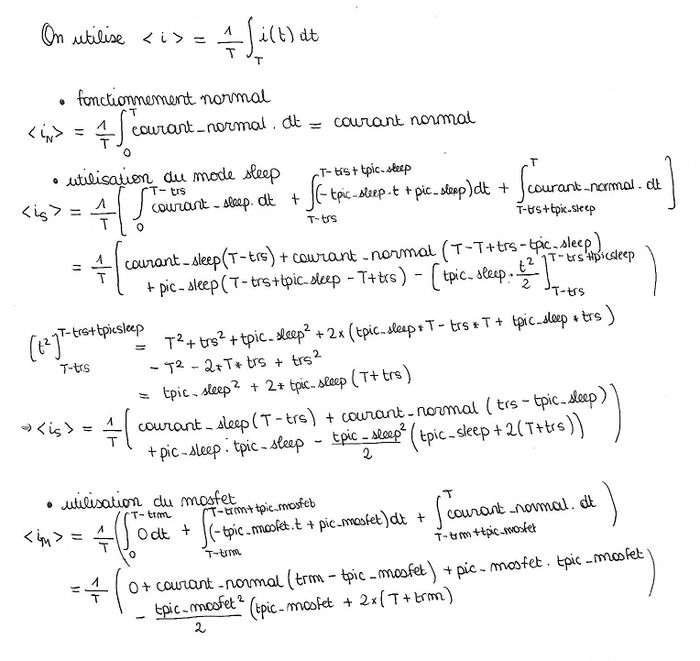 On utilise <i> = 1/T ∫_T i(t) dt
• fonctionnement normal
<i_N> = 1/T ∫_0^T courant_normal . dt = courant normal
• utilisation du mode sleep
<i_S> = 1/T [ ∫_0^{T-trs} courant_sleep . dt + ∫_{T-trs}^{T-trs+tpic_sleep} (-tpic_sleep.t + pic_sleep) dt + ∫_{T-trs+tpic_sleep}^T courant_normal . dt ]
= 1/T ( courant_sleep (T-trs) + courant_normal (T-T+trs-tpic_sleep)
+ pic_sleep (T-trs+tpic_sleep - T+trs) - [tpic_sleep . t²/2]_{T-trs}^{T-trs+tpicsleep} )
[t²]_{T-trs}^{T-trs+tpicsleep} = T² + trs² + tpic_sleep² + 2x (tpic_sleep * T - trs * T + tpic_sleep * trs)
- T² - 2*T* trs + trs²
= tpic_sleep² + 2* tpic_sleep (T+trs)
⇒ <i_S> = 1/T ( courant_sleep (T-trs) + courant_normal (trs - tpic_sleep)
+ pic_sleep . tpic_sleep - tpic_sleep²/2 (tpic_sleep + 2(T+trs)) )
• utilisation du mosfet
<i_M> = 1/T ( ∫_0^{T-trm} 0 dt + ∫_{T-trm}^{T-trm+tpic_mosfet} (-tpic_mosfet.t + pic_mosfet) dt + ∫_{T-trm+tpic_mosfet}^T courant_normal . dt )
= 1/T ( 0 + courant_normal (trm - tpic_mosfet) + pic_mosfet . tpic_mosfet
- tpic_mosfet²/2 (tpic_mosfet + 2x (T+trm) )